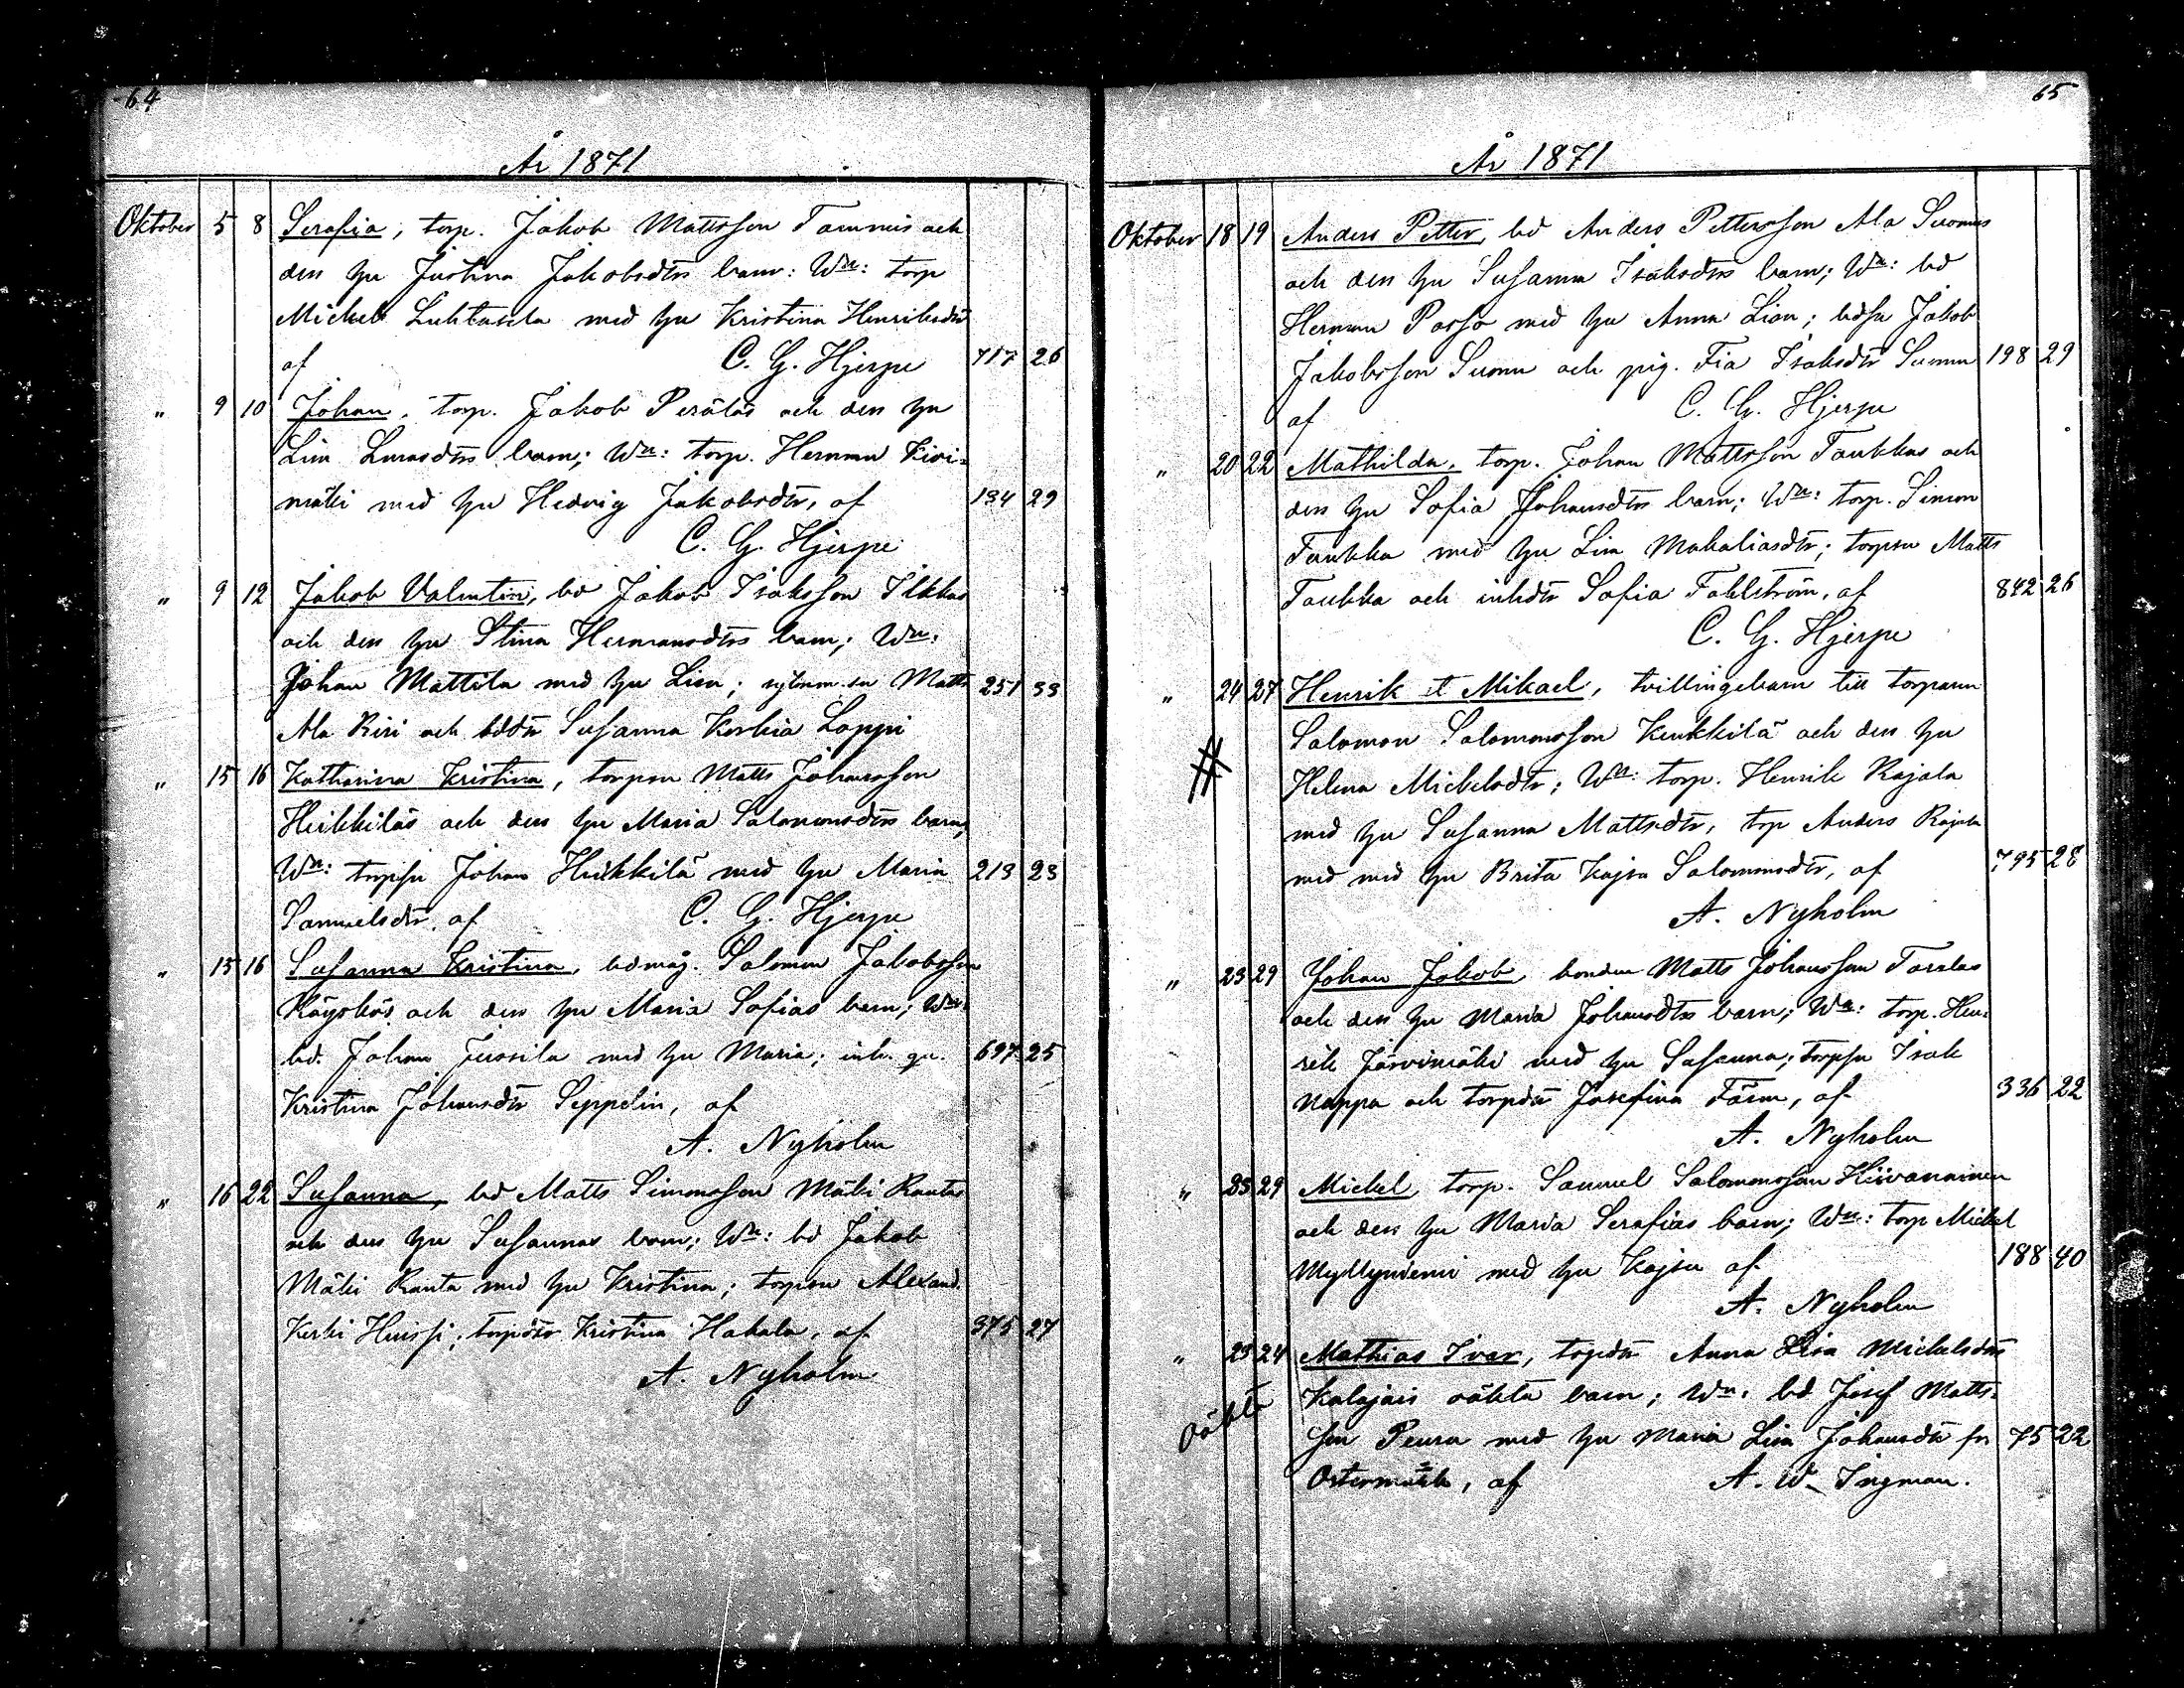 64
År 1871
Oktober 5 8 Serafia, torp. Jakob Mattsson Tammis och
den hu Justina Jakobsdtrs barn: Wn: torp
Mickel Luhtasela med hu Kristina Henriksdtr
af C. G. Hjerpe 717 26
" 9 10 Johan, torp. Jakob Perälas och den hu
Lisa Lucasdtrs barn; Wn: torp. Herman Kivi-
mäki med hu Hedvig Jakobsdtr, af 134 29
C. G. Hjerpe
" 9 12 Jakob Valentin, bd Jakob Isaksson Ilkkas
och den hu Stina Hermansdtrs barn; Wn:
Johan Mattila med hu Lisa; Matts 251 33
Ala Riri och bddtr Susanna Korkia Loppi
" 15 16 Katharina Kristina, torpsn Matts Johansson
Heikkiläs och den hu Maria Salomonsdtrs barn,
Wn: torpsn Johan Heikkilä med hu Maria 213 23
Samuelsdtr, af C. G. Hjerpe
" 15 16 Susanna Kristina, bdmåg. Salomon Jakobsson
Köyskös och den hu Maria Sofias barn; Wn:
bd. Johan Jussila med hu Maria; inh. qv. 697 25
Kristina Johansdtr Seppelin, af
A. Nyholm
" 16 22 Susanna, bd Matts Simonsson Mäki Rantas
och den hu Susannas barn; Wn: bd Jakob
Mäki Ranta med hu Kristina; torpsn Alexand.
Keski Huissi; torpdtr Kristina Hakala, af 375 27
A. Nyholm
65
År 1871
Oktober 18 19 Anders Petter, bd Anders Pettersson Ala Suomus
och den hu Susanna Isaksdtrs barn; Wn: bd
Herman Passo med hu Anna Lisa; bdsn Jakob
Jakobsson Suomu och pig. Fia Isaksdtr Suomu 198 29
af C. G. Hjerpe
" 20 22 Mathilda, torp. Johan Mattsson Taukkas och
den hu Sofia Johansdtrs barn; Wn: torp. Simon
Taukka med hu Lisa Makaliasdtr; torpsn Matts
Taukka och inhdtr Sofia Fahlström, af 842 26
C. G. Hjerpe
" 24 27 Henrik et Mikael, tvillingebarn till torparen
Salomon Salomonsson Keukkilä och den hu
# Helena Mickelsdtr; Wn: torp. Henrik Rajala
med hu Susanna Mattsdtr, torp Anders Rajala
med med hu Brita Kajsa Salomonsdtr, af 795 28
A. Nyholm
" 23 29 Johan Jakob, bonden Matts Johansson Taralas
och den hu Maria Johansdtrs barn; Wn: torp. Hen-
rik Järvimäki med hu Susanna; torpsn Isak
Nappa och torpdtr Josefina Färm, af 336 22
A. Nyholm
" 23 29 Mickel, torp. Samuel Salomonsson Hiivanainen
och den hu Maria Serafias barn; Wn: torp Mickel
Myllyniemi med hu Kajsa af 188 40
A. Nyholm
" 23 24 Mathias Iver, torpdtr Anna Lisa Mickelsdtrs
oäkta Kalajais oäkta barn; Wn: bd Josef Matts-
son Peura med hu Maria Lisa Johansdtr fr 75 22
Ostermark, af A. W. Ingman.